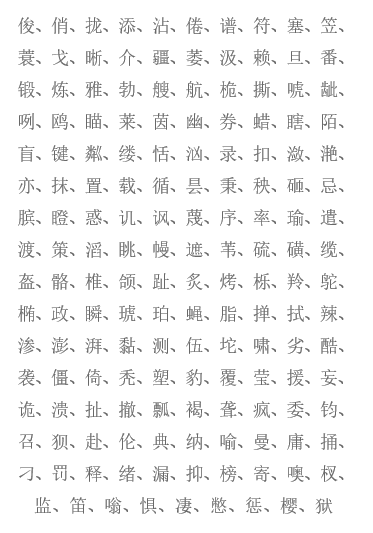 俊、俏、拢、添、沾、倦、谱、符、塞、笠、
蓑、戈、晰、介、疆、萎、汲、赖、旦、番、
锻、炼、雅、勃、艘、航、桅、撕、唬、龇、
咧、鸥、瞄、莱、茵、幽、券、蜡、瞎、陌、
盲、键、粼、缕、恬、汹、录、扣、潋、滟、
亦、抹、置、载、循、昙、秉、秧、砸、忌、
膑、瞪、惑、讥、讽、蔑、序、率、瑜、遣、
渡、策、滔、眺、幔、遮、苇、硫、磺、缆、
盔、骼、椎、颌、趾、炙、烤、栎、羚、鸵、
椭、政、瞬、琥、珀、蝇、脂、掸、拭、辣、
渗、澎、湃、黏、测、伍、坨、啸、劣、酷、
袭、僵、倚、秃、塑、豹、覆、莹、援、妄、
诡、溃、扯、撤、瓢、褐、聋、疯、委、钧、
召、狈、赴、伦、典、纳、喻、曼、庸、捅、
刁、罚、释、绪、漏、抑、榜、寄、噢、杈、
监、笛、嗡、惧、凄、憋、惩、樱、狱